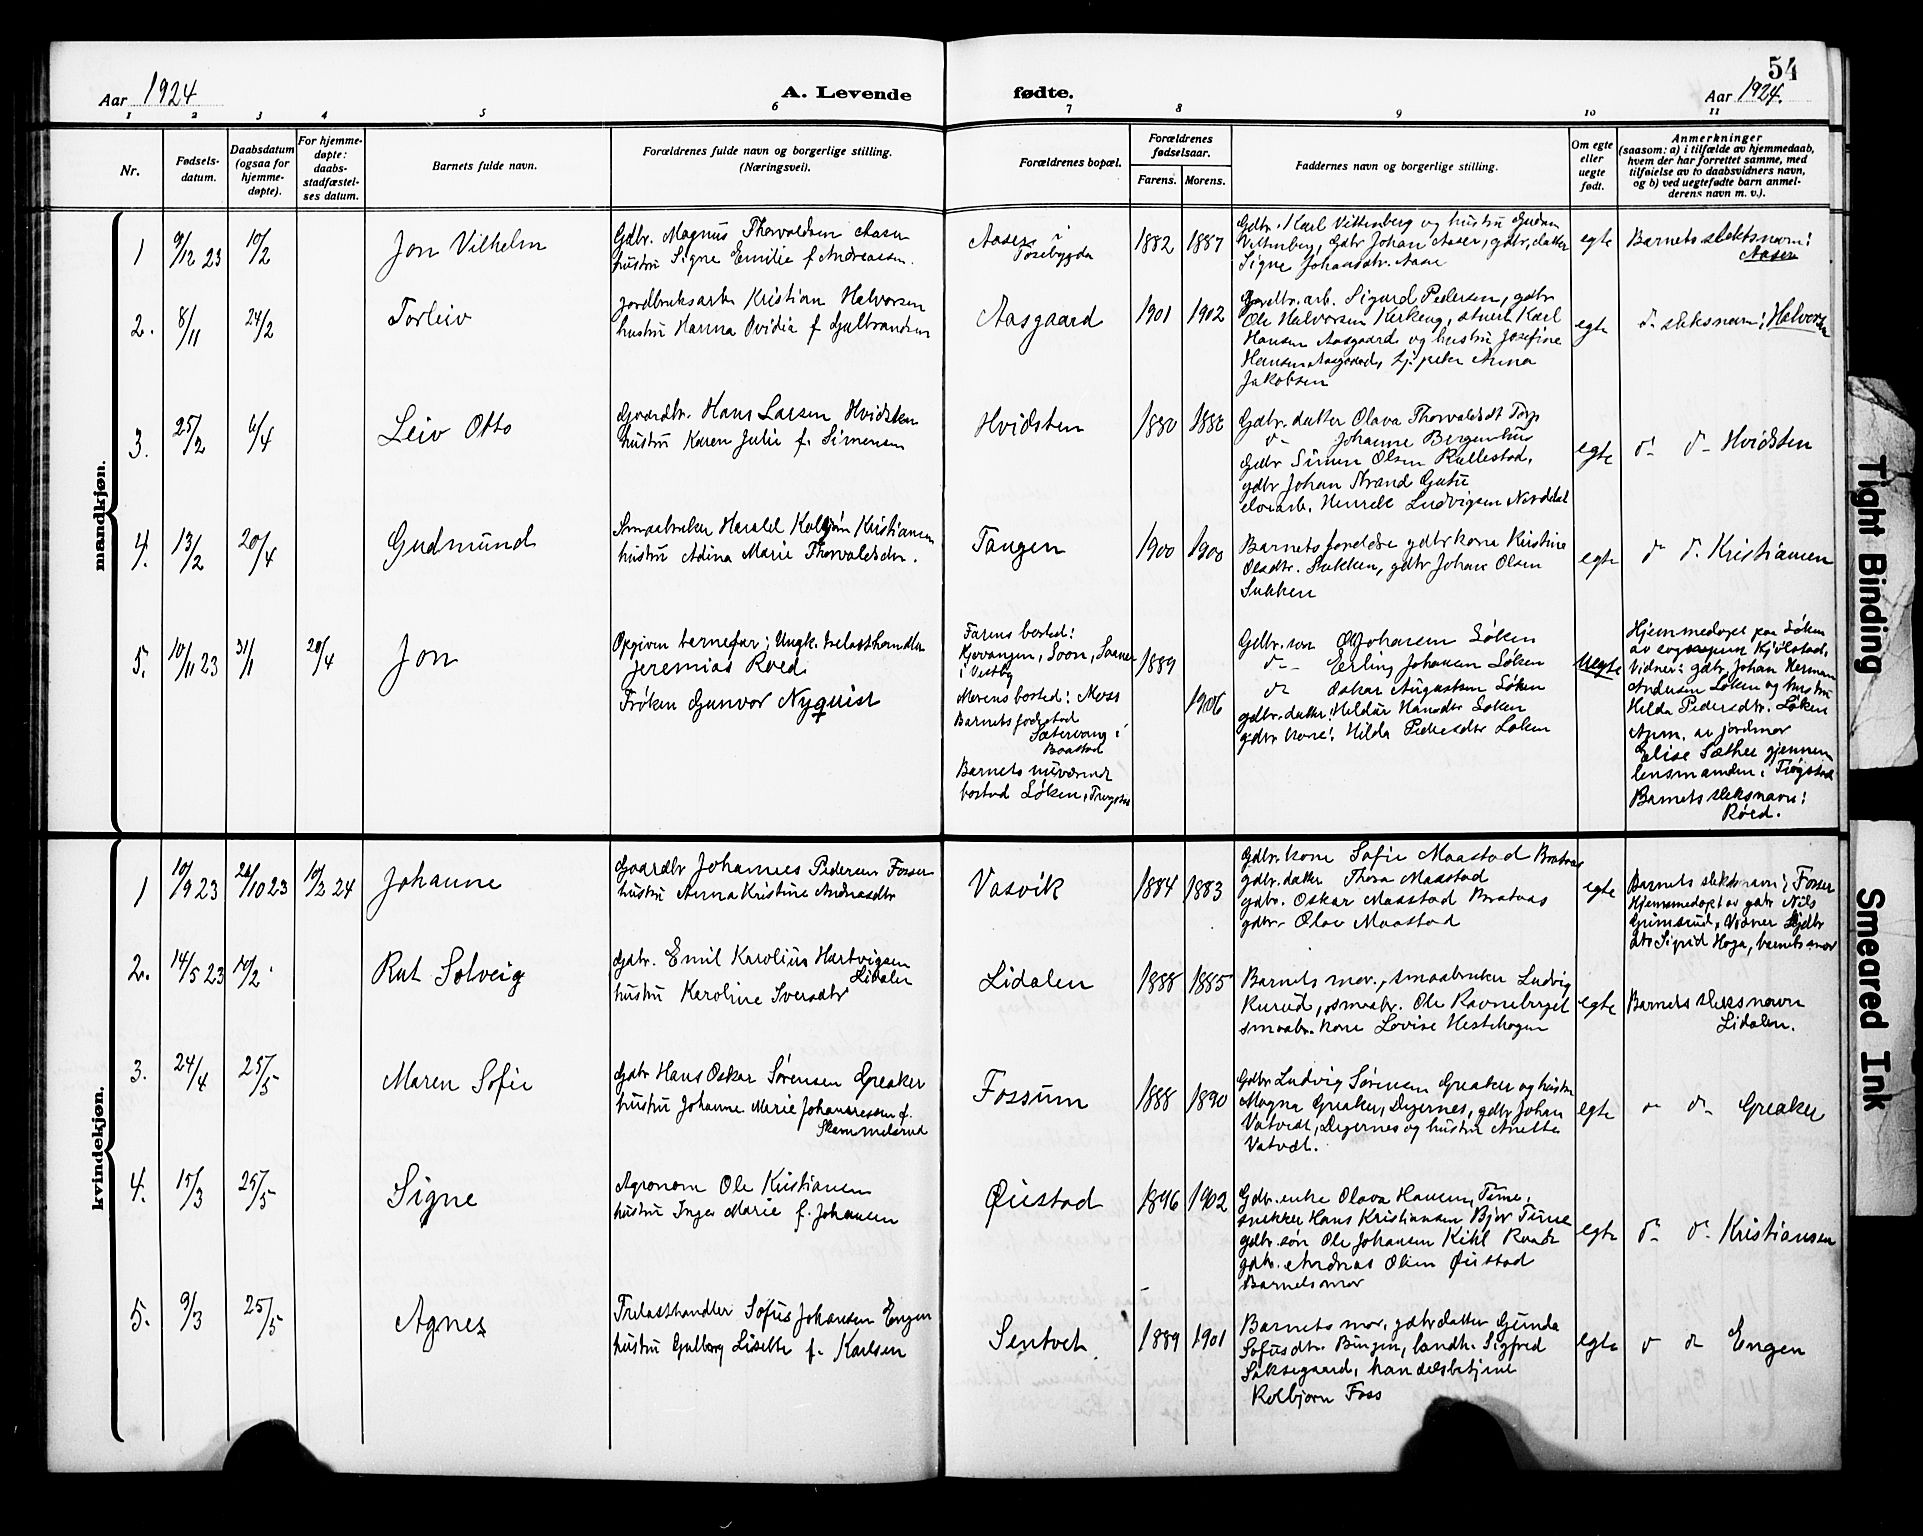 54
Aar 1924
A. Levende
fødte.
Aar 1924.
1 2 3 4 5 6 7 8 9 10 11
Nr.
Fødsels-
datum.
Daabsdatum
(ogsaa for
hjemme-
døpte).
For hjemme-
døpte:
daabs-
stadfæstel-
ses datum.
Barnets fulde navn.
Forældrenes fulde navn og borgerlige stilling.
(Næringsvei).
Forældrenes bopæl.
Forældrenes
fødselsaar.
Farens. Morens.
Faddernes navn og borgerlige stilling.
Om egte
eller
uegte
født.
Anmerkninger
(saasom: a) i tilfælde av hjemmedaab,
hvem der har forrettet samme, med
tilføielse av to daabsvidners navn,
og b) ved uegtefødte barn anmel-
derens navn m. v.).
mandkjøn.
1 9/12 23 10/2
Jon Vilhelm
Gdbr. Magnus Thorvaldsen Aaser
hustru Signe Emilie f. Andreassen.
Aaser i
Tosebygda
1882 1887
Gdbr. Karl Vittenberg og hustru Gudrun
Vittenberg, Gdbr Johan Aaser, gdbr. datter
Signe Johansdtr. Aase
egte
Barnets slektsnavn:
Aaser
2. 8/11 24/2
Torleiv
Jordbruksarb. Kristian Halvorsen
hustru Hanna Ovidia f. Gulbrandsen
Aasgaard
1901 1902
Jordbr. arb. Sigurd Pedersen, gdbr
Ole Halvorsen Kirkeng, stuert Karl
Hansen Aasgaard og hustru Josefine
Hansen Aasgaard, tj. pike Anna
Jakobsen
egte
d- slektsnavn: Halvorsen
3. 25/2 6/4
Leiv Otto
Gaardbr. Hans Larsen Hvidsten
hustru Karen Julie f. Simensen
Hvidsten
1880 1886
Gdbr. datter Olava Thorvaldsdt Torp
d- Johanne Bergenhus
Gdbr Simen Olsen Rullestad,
gdbr Johan Strand Gutu
elvearb. Henrik Ludvigsen Norddal
egte
d- d- Hvidsten
4. 13/2 20/4
Gudmund
Smaabruker Harald Kolbjørn Kristiansen
hustru Adina Marie Thorvaldsdtr.
Tangen
1900 1900
Barnets foreldre gdbrkone Kristine
Olsdtr. Sukken, gdbr Johan Olsen
Sukken
egte
d- d. Kristiansen
5. 10/11 23 31/1 20/4
Jon
Opgiven barnefar: Ungk. trelasthandler
Jeremias Roed
Frøken Gunvor Nyquist
Farens bosted:
Kjøvangen, Soon, Saaner
i Vestby
Morens bosted: Moss
Barnets fødested
Sætervang i
Baastad
Barnets nuværende
bosted Løken, Trøgstad
1889
1906
Gdbr. søn Olf Johansen Løken
d- Erling Johansen Løken
d- Oskar Augustsen Løken
gdbr. datter: Heldur Hansdtr Løken
gdbr kone: Hilda Pedersdtr Løken
Uegte
Hjemmedøpt paa Løken
av sogneprest Kjölstad.
Vidner: gdbr. Johan Herman
Andersen Løken og hustru
Hilda Pedersdtr. Løken
Anm. av jordmor
Elise Sæther gjennem
lensmanden i Trøgstad
Barnets slektsnavn:
Røed.
kvindekjøn.
1 10/9 23 20/10 23 10/2 24
Johanne
Gaardbr Johannes Pedersen Fosser
hustru Anna Kristine Andreasdtr
Vasvik
1884 1883
Gdbr. kone Sofie Maastad Bratvas
gdbr. datter Thora Maastad
gdbr. Oskar Maastad Bratvas
gdbr. Olav Maastad
egte
Barnets slektsnavn: Fosser
Hjemmedøpt av gdbr Nils
Grimsrud, Vidner Gdbr
dtr Sigrid Haga, barnets mor
2. 14/5 23 10/2
Rut Solveig
Gdbr. Emil Karolius Hartvigsen
Lidalen
hustru Karoline Iversdtr
Lidalen
1888 1885
Barnets mor, smaabruker Ludvig
Kurud, smaabr. Ole Ravneberget
smaabr. kone Lovise Hestehagen
egte
Barnets slektsnavn
Lidalen.
3. 24/4 25/5
Maren Sofie
Gdbr Hans Oskar Sørensen Greaker
hustru Johanne Marie Johannessen f.
Skammelsrud
Fossum
1888 1890
Gdbr Ludvig Sørensen Greaker og hustru
Magna Greaker, Degernes, gdbr Johan
Vatvedt, Degernes og hustru Anette
Vatvedt.
egte
d- d- Greaker
4. 15/3 25/5
Signe
Agronom Ole Kristiansen
hustru Inger Marie f. Johansen
Øiestad
1896 1902
Gdbr. enke Olava Hansen, Time,
snekker Hans Kristiansen Bjor Time
gdbr. søn Ole Johansen Kihl Raade
gdbr. Andreas Olsen Øiestad
Barnets mor
egte
d- d- Kristiansen
5. 9/3 25/5
Agnes
Trelasthandler Sofus Johansen Engen
hustru Gulborg Lisette f. Karlsen
Sentvet
1889 1901
Barnets mor, gdbr datter Gunda
Sofusdtr. Bingen, landh. Sigfred
Saksegaard, handelsbetjent
Kolbjørn Foss
egte
d d Engen
Tight Binding
Smeared Ink